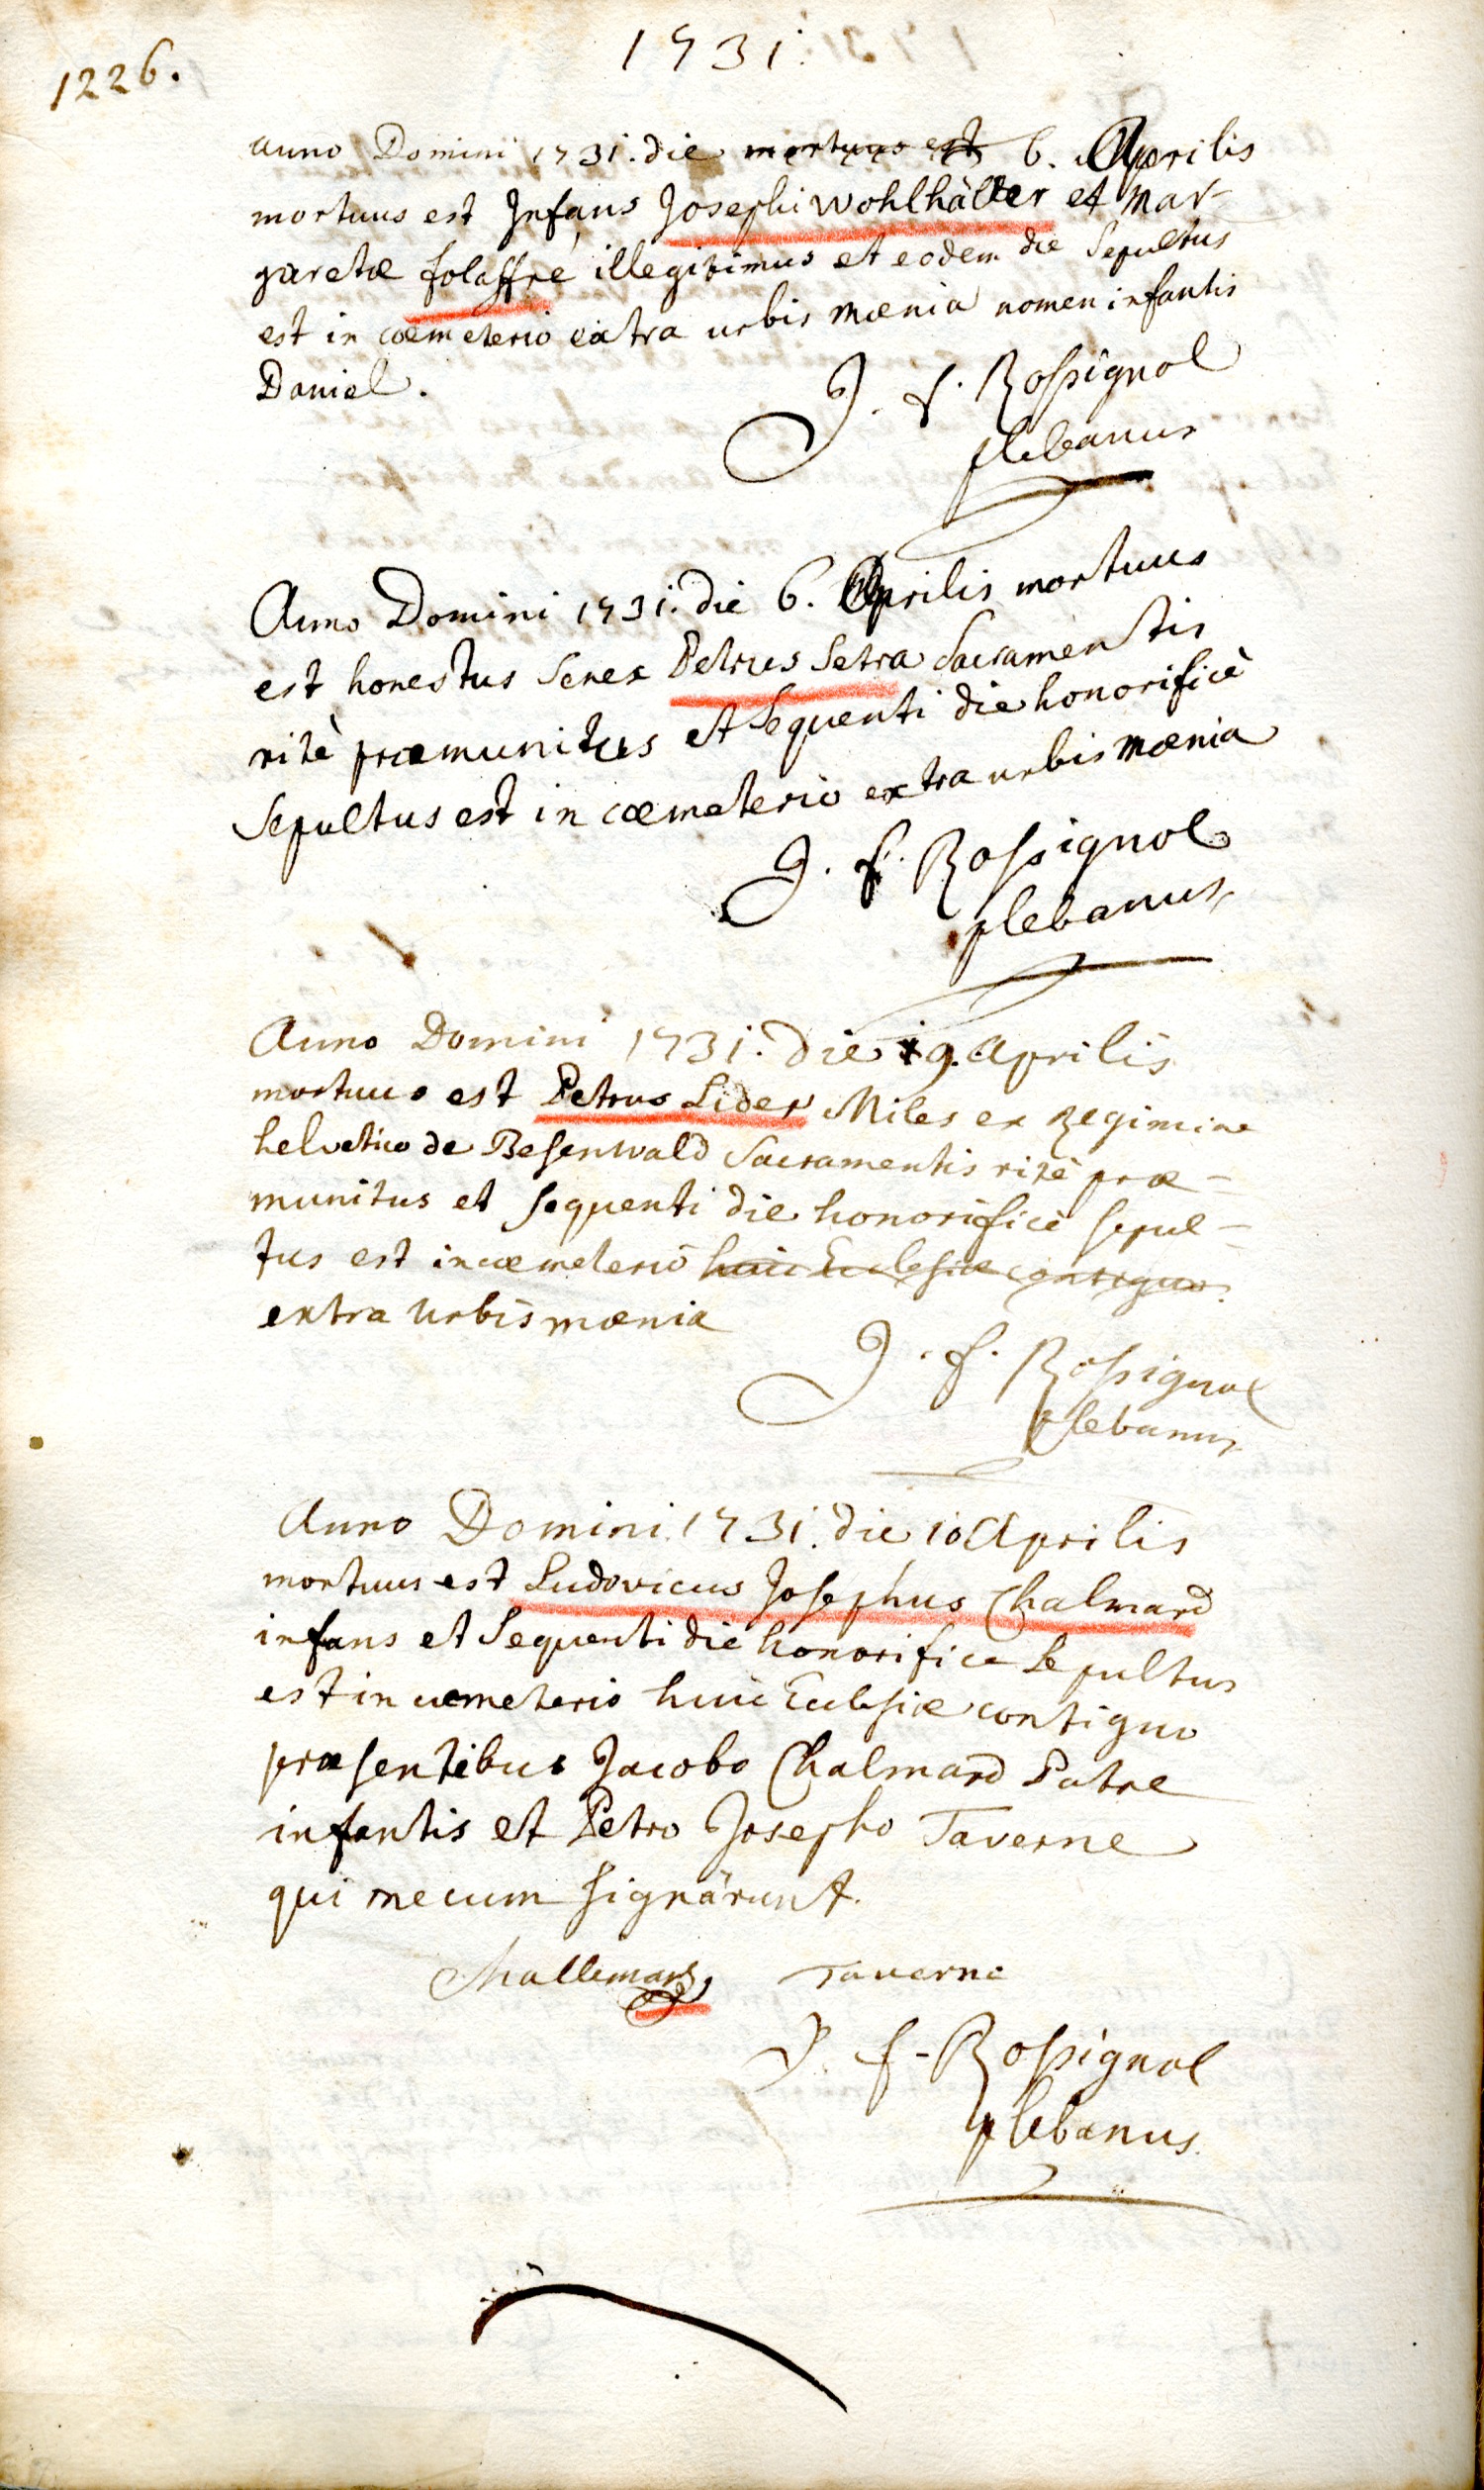 1226.
1731.
anno Domini 1731. die mortuus est 6. Aprilis
mortuus est Infans Josephi wohlhäller et Mar-
garetæ folaffré illegitimus et eodem die Sepultus
est in cœmeterio extra urbis mœnia nomen infantis
Daniel.
J. f. Rossignol
plebanus
Anno Domini 1731. die 6. Aprilis mortuus
est honestus Senex Petrus Setra Sacramentis
ritè præmunitus et Sequenti die honorificè
Sepultus est in cœmeterio extra urbis mœnia
J. f. Rossignol
plebanus
Anno Domini 1731. die 9. Aprilis
mortuus est Petrus Lider Miles ex Regimine
helvetico de Besenwald Sacramentis ritè præ-
munitus et sequenti die honorificè sepul-
tus est in cœmeterio huic Ecclesiæ contiguo.
extra Urbis mœnia
J. f. Rossignol
plebanus
Anno Domini 1731. die 10 Aprilis
mortuus est Ludovicus Josephus Chalmard
infans et Sequenti die honorifice Sepultus
est in cœmeterio huic Ecclesiæ contiguo
præsentibus Jacobo Chalmard Patre
infantis et Petro Josepho Taverne
qui mecum signârunt.
Challemard Taverne
J. f. Rossignol
plebanus.